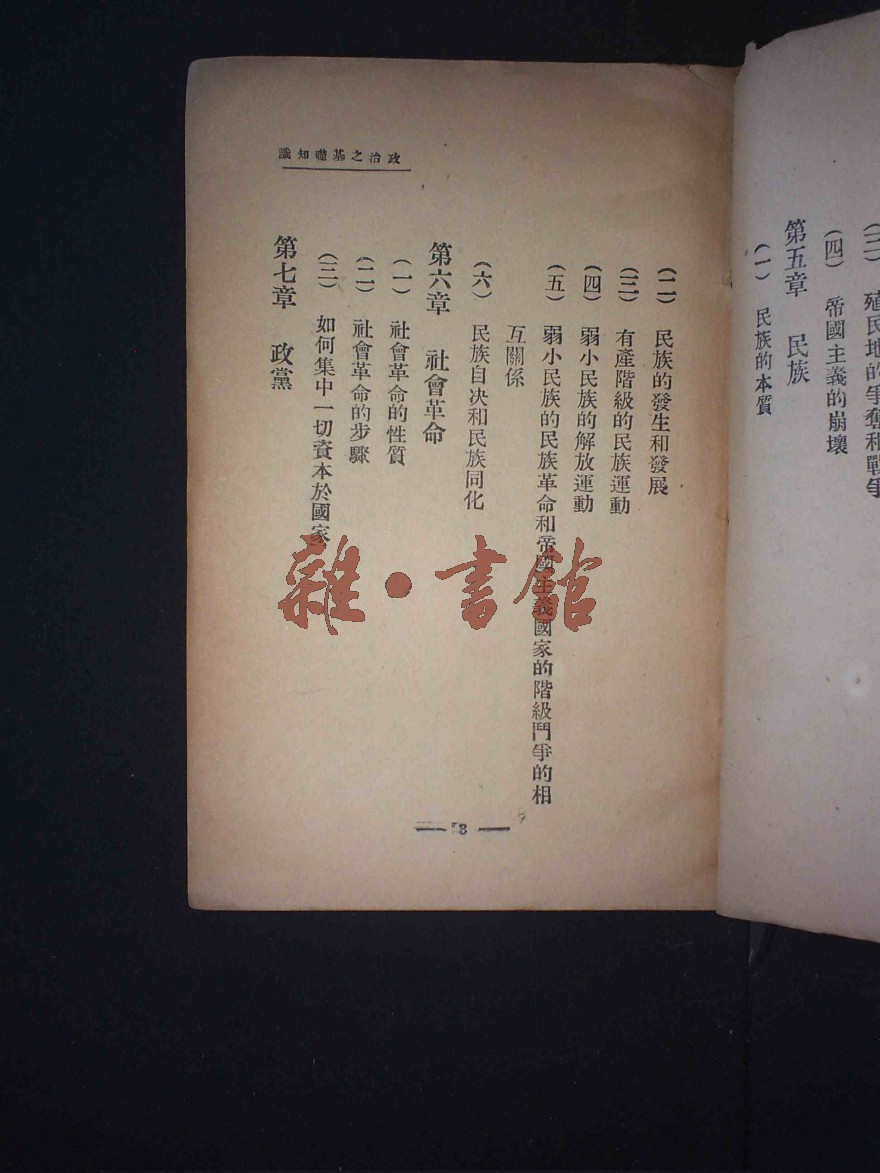 (三) 殖民地的爭奪和戰爭
(四) 帝國主義的崩壞
第五章 民族
(一) 民族的本質
政治之基礎知識
(二) 民族的發生和發展
(三) 有產階級的民族運動
(四) 弱小民族的解放運動
(五) 弱小民族的民族革命和帝國主義國家的階級鬥爭的相
互關係
(六) 民族自決和民族同化
第六章 社會革命
(一) 社會革命的性質
(二) 社會革命的步驟
(三) 如何集中一切資本於國家
第七章 政黨
雜·書館